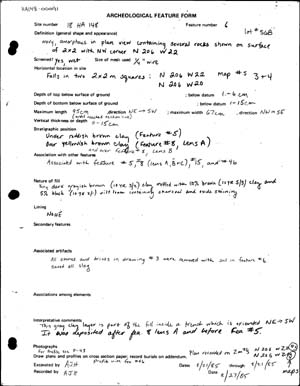 ARCHEOLOGICAL FEATURE FORM
Site number 18 HA 148 Feature number 6
Definition (general shape and appearance) lot #56B
wavy, amorphous in plan view containing several rocks shown on surface
of 2x2 with NW corner N 206 W 22
Screened? yes, wet Size of mesh used 1/4" wire
Horizontal location in site
Falls in two 2x2m squares: N 206 W 22 map #s 3+4
N 206 W 20
Depth of top below surface of ground ; below datum
Depth of bottom below surface of ground ; below datum 1-15cm
Maximum length 95cm direction NE → SW ; maximum width 67cm direction NW → SE
Vertical thickness or depth
Stratigraphic position
Under reddish brown clay (Feature #5)
Over yellowish brown clay (Feature #8, Lens A)
and over feature #5, Lens B
Association with other features
Associated with feature #5, #8 (lens A, B+C), #15, and #46
Nature of fill
dark grayish brown clay mottled with 15% brown (10YR 5/3) clay and
5% black (10YR 2/1) silt loam containing charcoal and soda staining
Lining
None
Secondary features
Associated artifacts
All stones and bricks in drawing #3 were removed with soil in feature #6
Saved all clay
Associations among elements
Interpretative comments
This gray clay layer is part of the fill inside a trench which is oriented NE → SW
It was deposited after Fea 8 lens A and before Fea #5.
Photographs
Plan recorded on 2m #3 N 206 W 22
N 206 W 20
Draw plans and profiles on section paper; record burials on addendum.
Excavated by AJH Date 8/21/85 through 8/21/85
Recorded by AJH Date 8/27/85